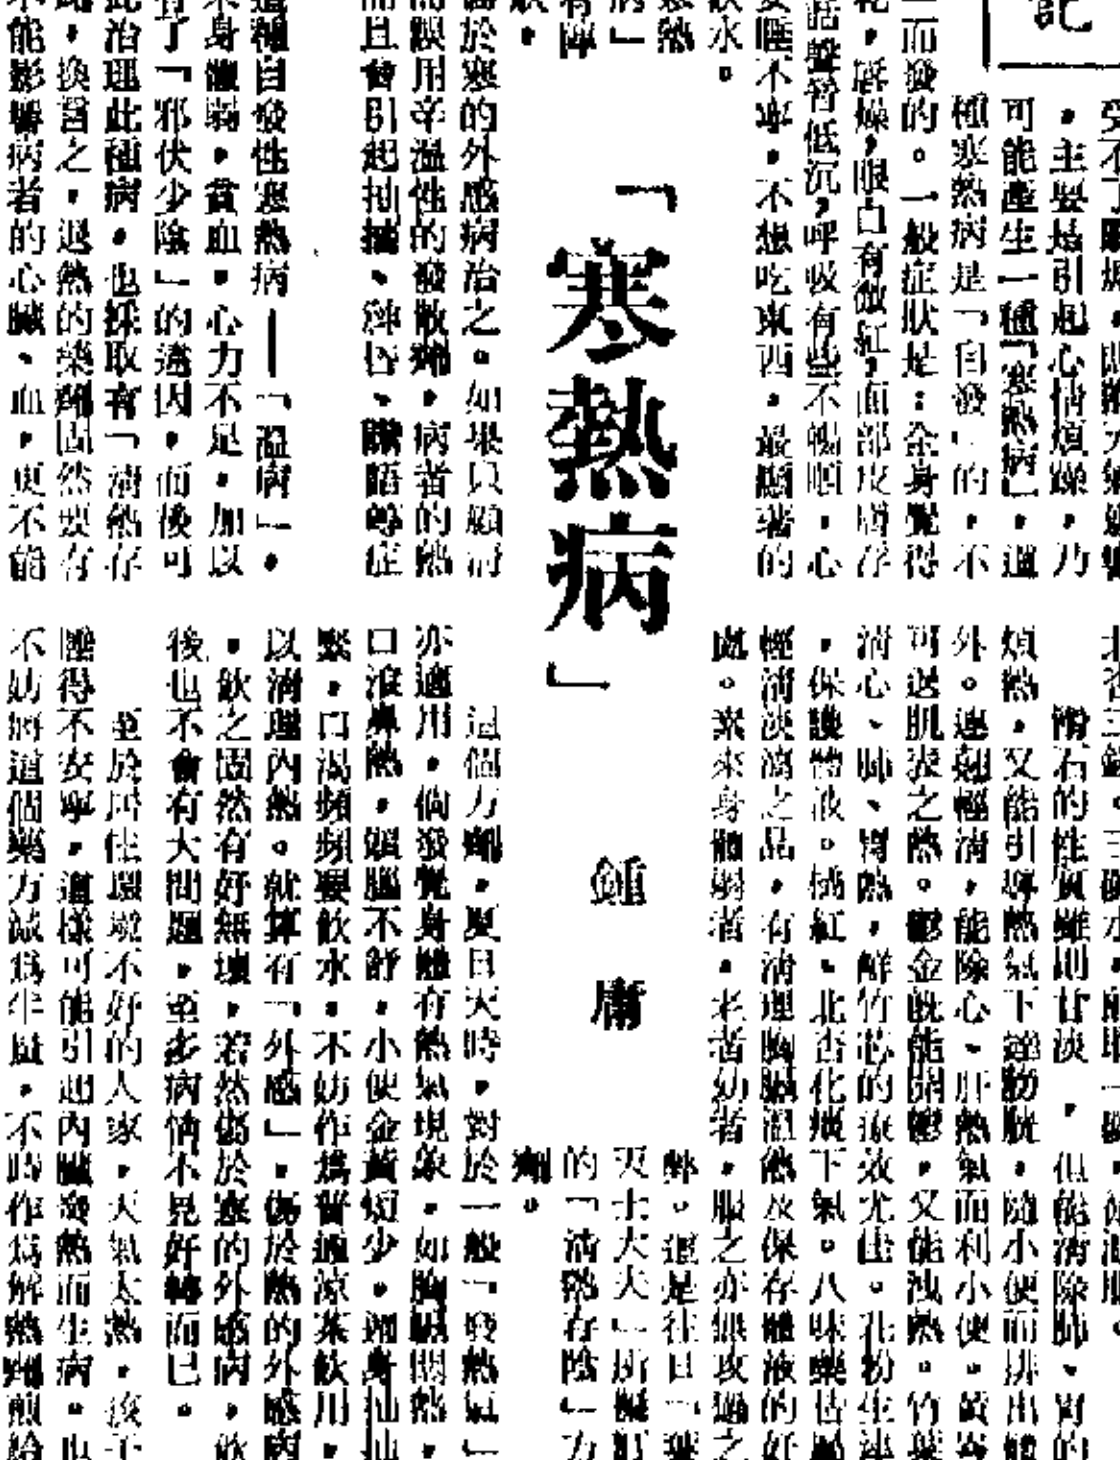 記
受不了
，主要是引起心情煩躁，乃
可能產生一種「寒熱病」，這
種寒熱病是「自發」的，不
而發的。一般症狀是：全身覺得
，唇燥，眼白有微紅，面部皮膚存
話聲音低沉，呼吸有些不暢順，心
安睡不寧，不想吃東西，最顯著的
飲水。
寒熱
病」
「寒熱病」
鍾庸
於寒的外感病治之。如果只顧清
誤用辛溫性的發散劑，病者的熱
而且會引起抽搐、神昏、譫語等症
這種自發性寒熱病——「溫病」，
身體弱，貧血，心力不足，加以
有了「邪伏少陰」的遠因，而後可
此治理此種病，也採取有「清熱存
，換言之，退熱的藥劑固然要有
不能影響病者的心臟、血，更不能
滑石的性質雖則甘淡，但能清除肺、胃的
煩熱，又能引導熱氣下達膀胱，隨小便而排出體
外。連翹輕清，能除心、肝熱氣而利小便。黃芩
可送肌表之熱。鬱金既能開鬱，又能洩熱。竹葉
清心、肺、胃熱，鮮竹芯的療效尤佳。花粉生津
，保護體液。橘紅、北杏化痰下氣。八味藥皆屬
輕清淡滴之品，有清理胸膈溫熱及保存體液的好
處。素來身體弱者，老者幼者，服之亦無攻過之
弊。還是往日「葉
天士大夫」所擬訂
的「清熱存陰」方
劑。
這個方劑，夏日天時，對於一般「發熱氣」
亦適用，倘發覺身體有熱氣現象，如胸膈悶熱，
口滾鼻熱，頭腦不舒，小便金黃短少，週身抽抽
緊，口渴頻頻要飲水，不妨作為普通涼茶飲用，
以清理內熱。就算有「外感」，傷於熱的外感病
，飲之固然有好無壞，若然傷於寒的外感病，飲
後也不會有大問題，至多病情不見好轉而已。
至於居住環境不好的人家，天氣太熱，孩子
睡得不安寧，這樣可能引起內臟發熱而生病。也
不妨將這個藥方減爲半量，不時作爲解熱劑煎給